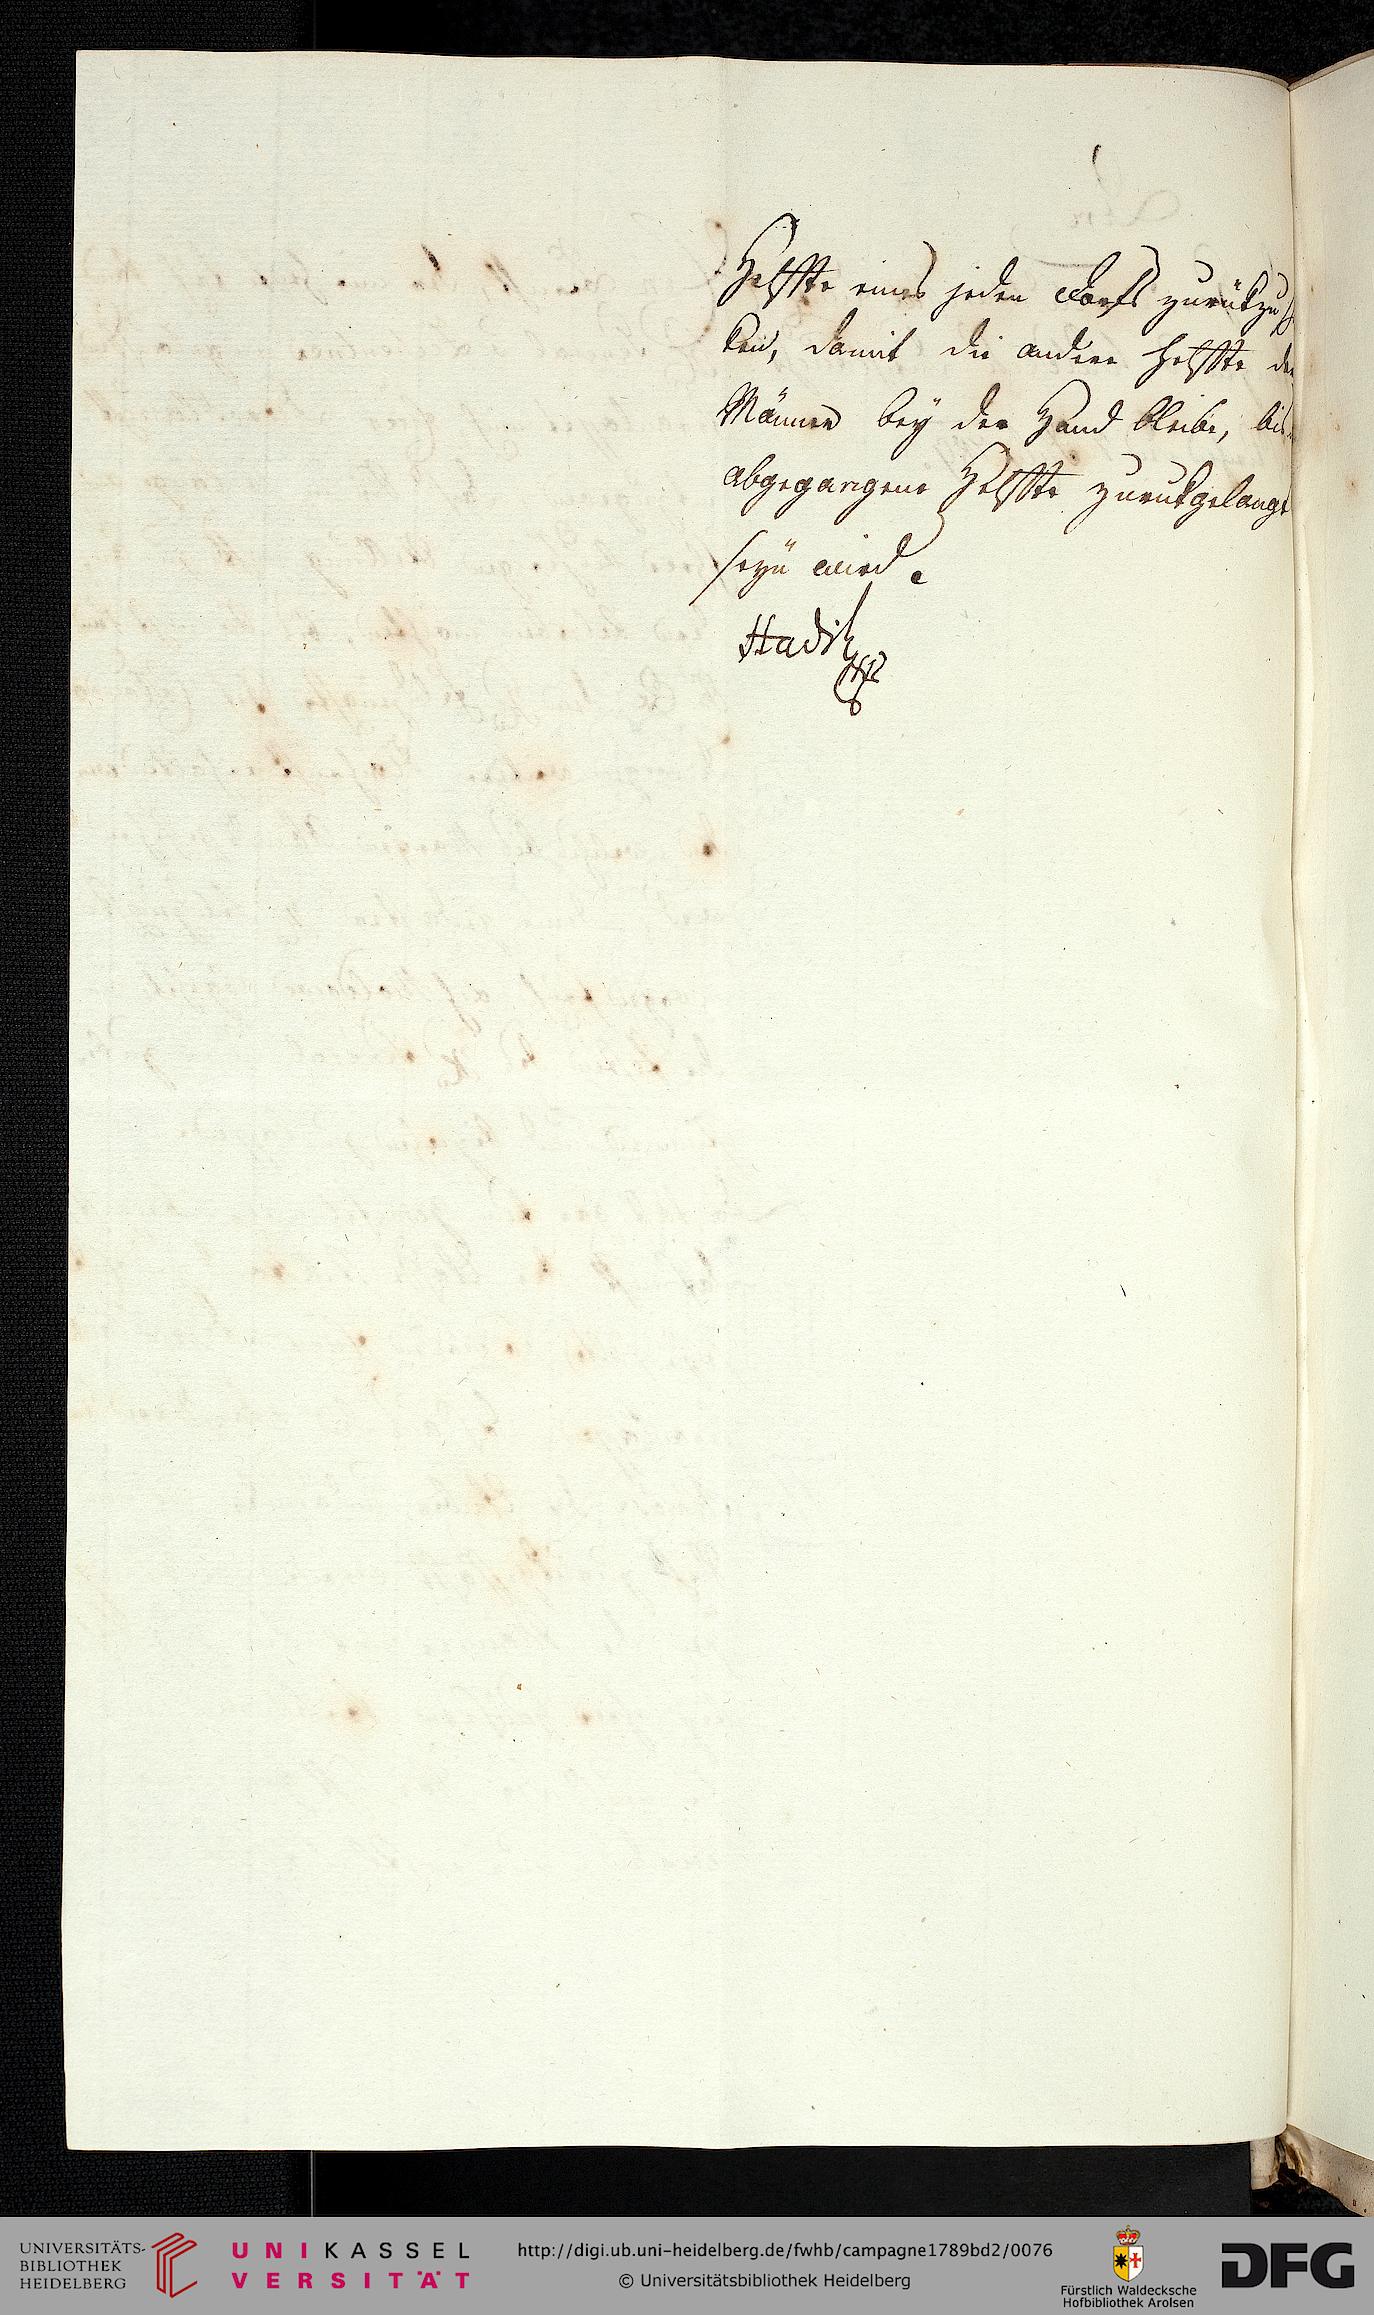 Helffte eines jeden Dorfs zurükzu
ken, damit die andere Helffte der
Männer bey der Hand bleibe, bis
abgegangene Helffte zurukgelangt
seyn wird.
Hadik
UNIVERSITÄTS-
BIBLIOTHEK
HEIDELBERG
UNIKASSEL
VERSITÄT
http://digi.ub.uni-heidelberg.de/fwhb/campagne1789bd2/0076
© Universitätsbibliothek Heidelberg
Fürstlich Waldecksche
Hofbibliothek Arolsen
DFG